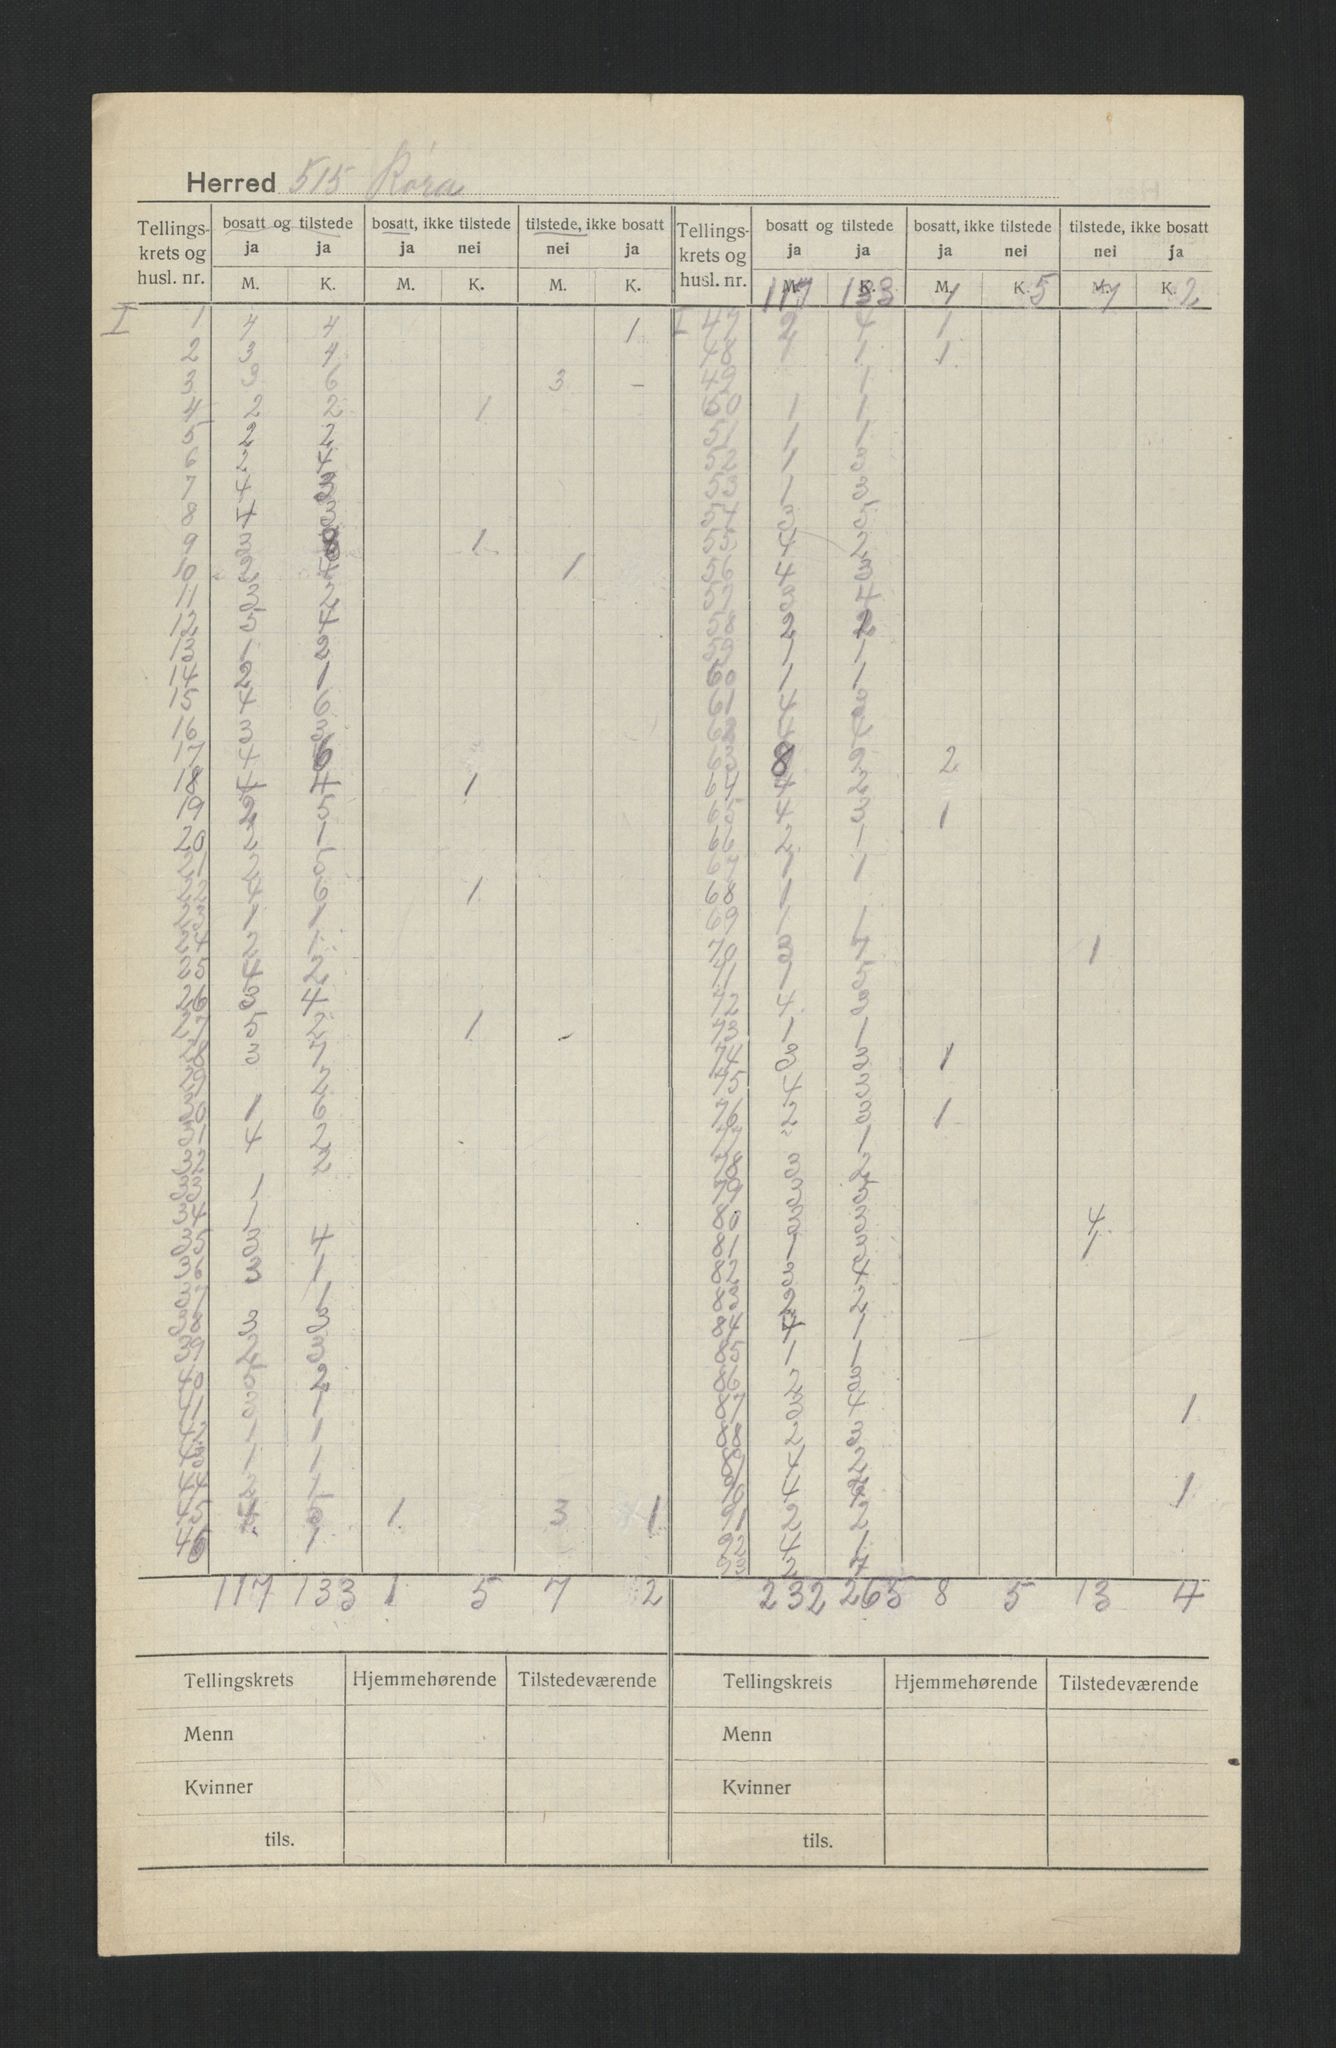 Herred 515 Røra
Tellings- bosatt og tilstede bosatt, ikke tilstede tilstede, ikke bosatt Tellings- bosatt og tilstede bosatt, ikke tilstede tilstede, ikke bosatt
krets og ja ja ja nei nei ja krets og ja ja ja nei nei ja
husl. nr. M. K. M. K. M. K. husl. nr. M. K. M. K. M. K.
117 133 1 5 7 2
I 1 4 4 1 I 47 2 4 1
2 3 4 48 1 1 1
3 3 6 3 – 49 1
4 2 2 1 50 1 1
5 2 2 51 1 1
6 2 4 52 1 3
7 4 3 53 1 3
8 4 3 54 3 5
9 3 8 1 55 4 2
10 2 4 1 56 4 3
11 3 2 57 3 4
12 3 4 58 2 2
13 1 3 59 1 1
14 2 1 60 1 1
15 4 6 61 4 3
16 3 3 62
17 4 6 63 8 2 2
18 4 4 1 64 4 2
19 2 5 65 4 3 1
20 2 1 66 2 1
21 2 5 67 1 1
22 4 6 1 68 1
23 1 1 69 1 1
24 2 1 70 3 7 1
25 4 2 71 1 5
26 3 4 72 4 3
27 5 2 1 - 73 1 1
28 3 7 74 3 3 1
29 2 75 4 3
30 1 6 76 2 3 1
31 4 2 77 2 1
32 2 78 3 2
33 1 79 3
34 1 80 3 3 4
35 3 4 81 1 3 1
36 3 1 82 3 4
37 1 83 2 2
38 3 3 84 4 1
39 2 3 85 1 1
40 2 86 2 3
41 3 1 87 3 4 1
42 1 1 88 2 3
43 1 1 89 4 2
44 2 1 90 4 2 1
45 4 6 1 3 1 91 2 2
46 1 92 4 1
93 2 7
117 133 1 5 7 2 232 265 8 5 13 4
Tellingskrets Hjemmehørende Tilstedeværende Tellingskrets Hjemmehørende Tilstedeværende
Menn Menn
Kvinner Kvinner
tils. tils.